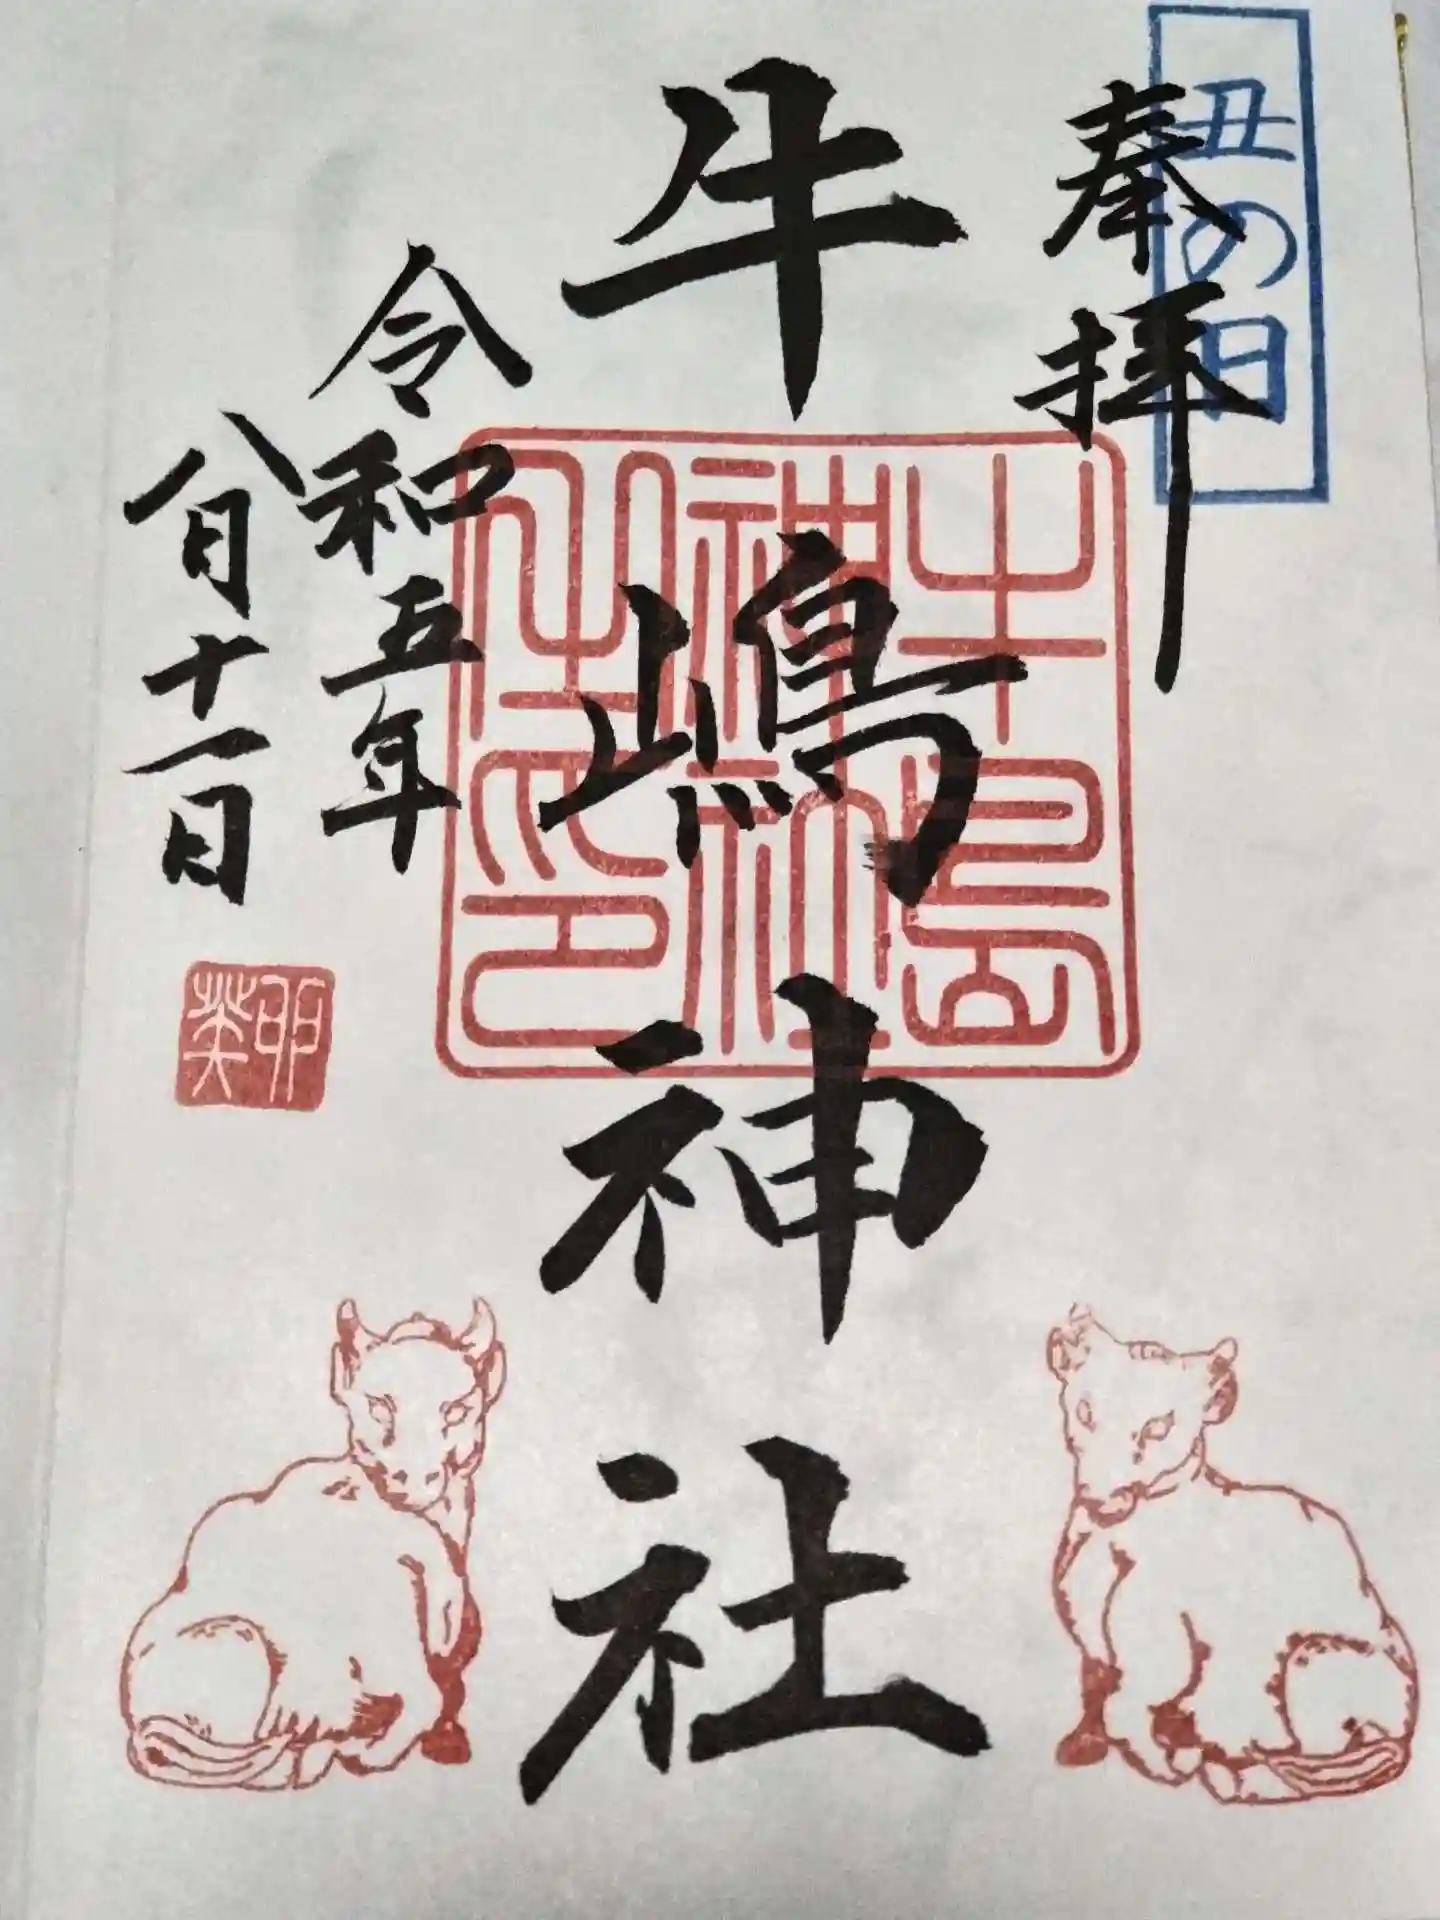 丑の日
奉拝
牛嶋神社
牛島神社之印
令和五年
八月十一日